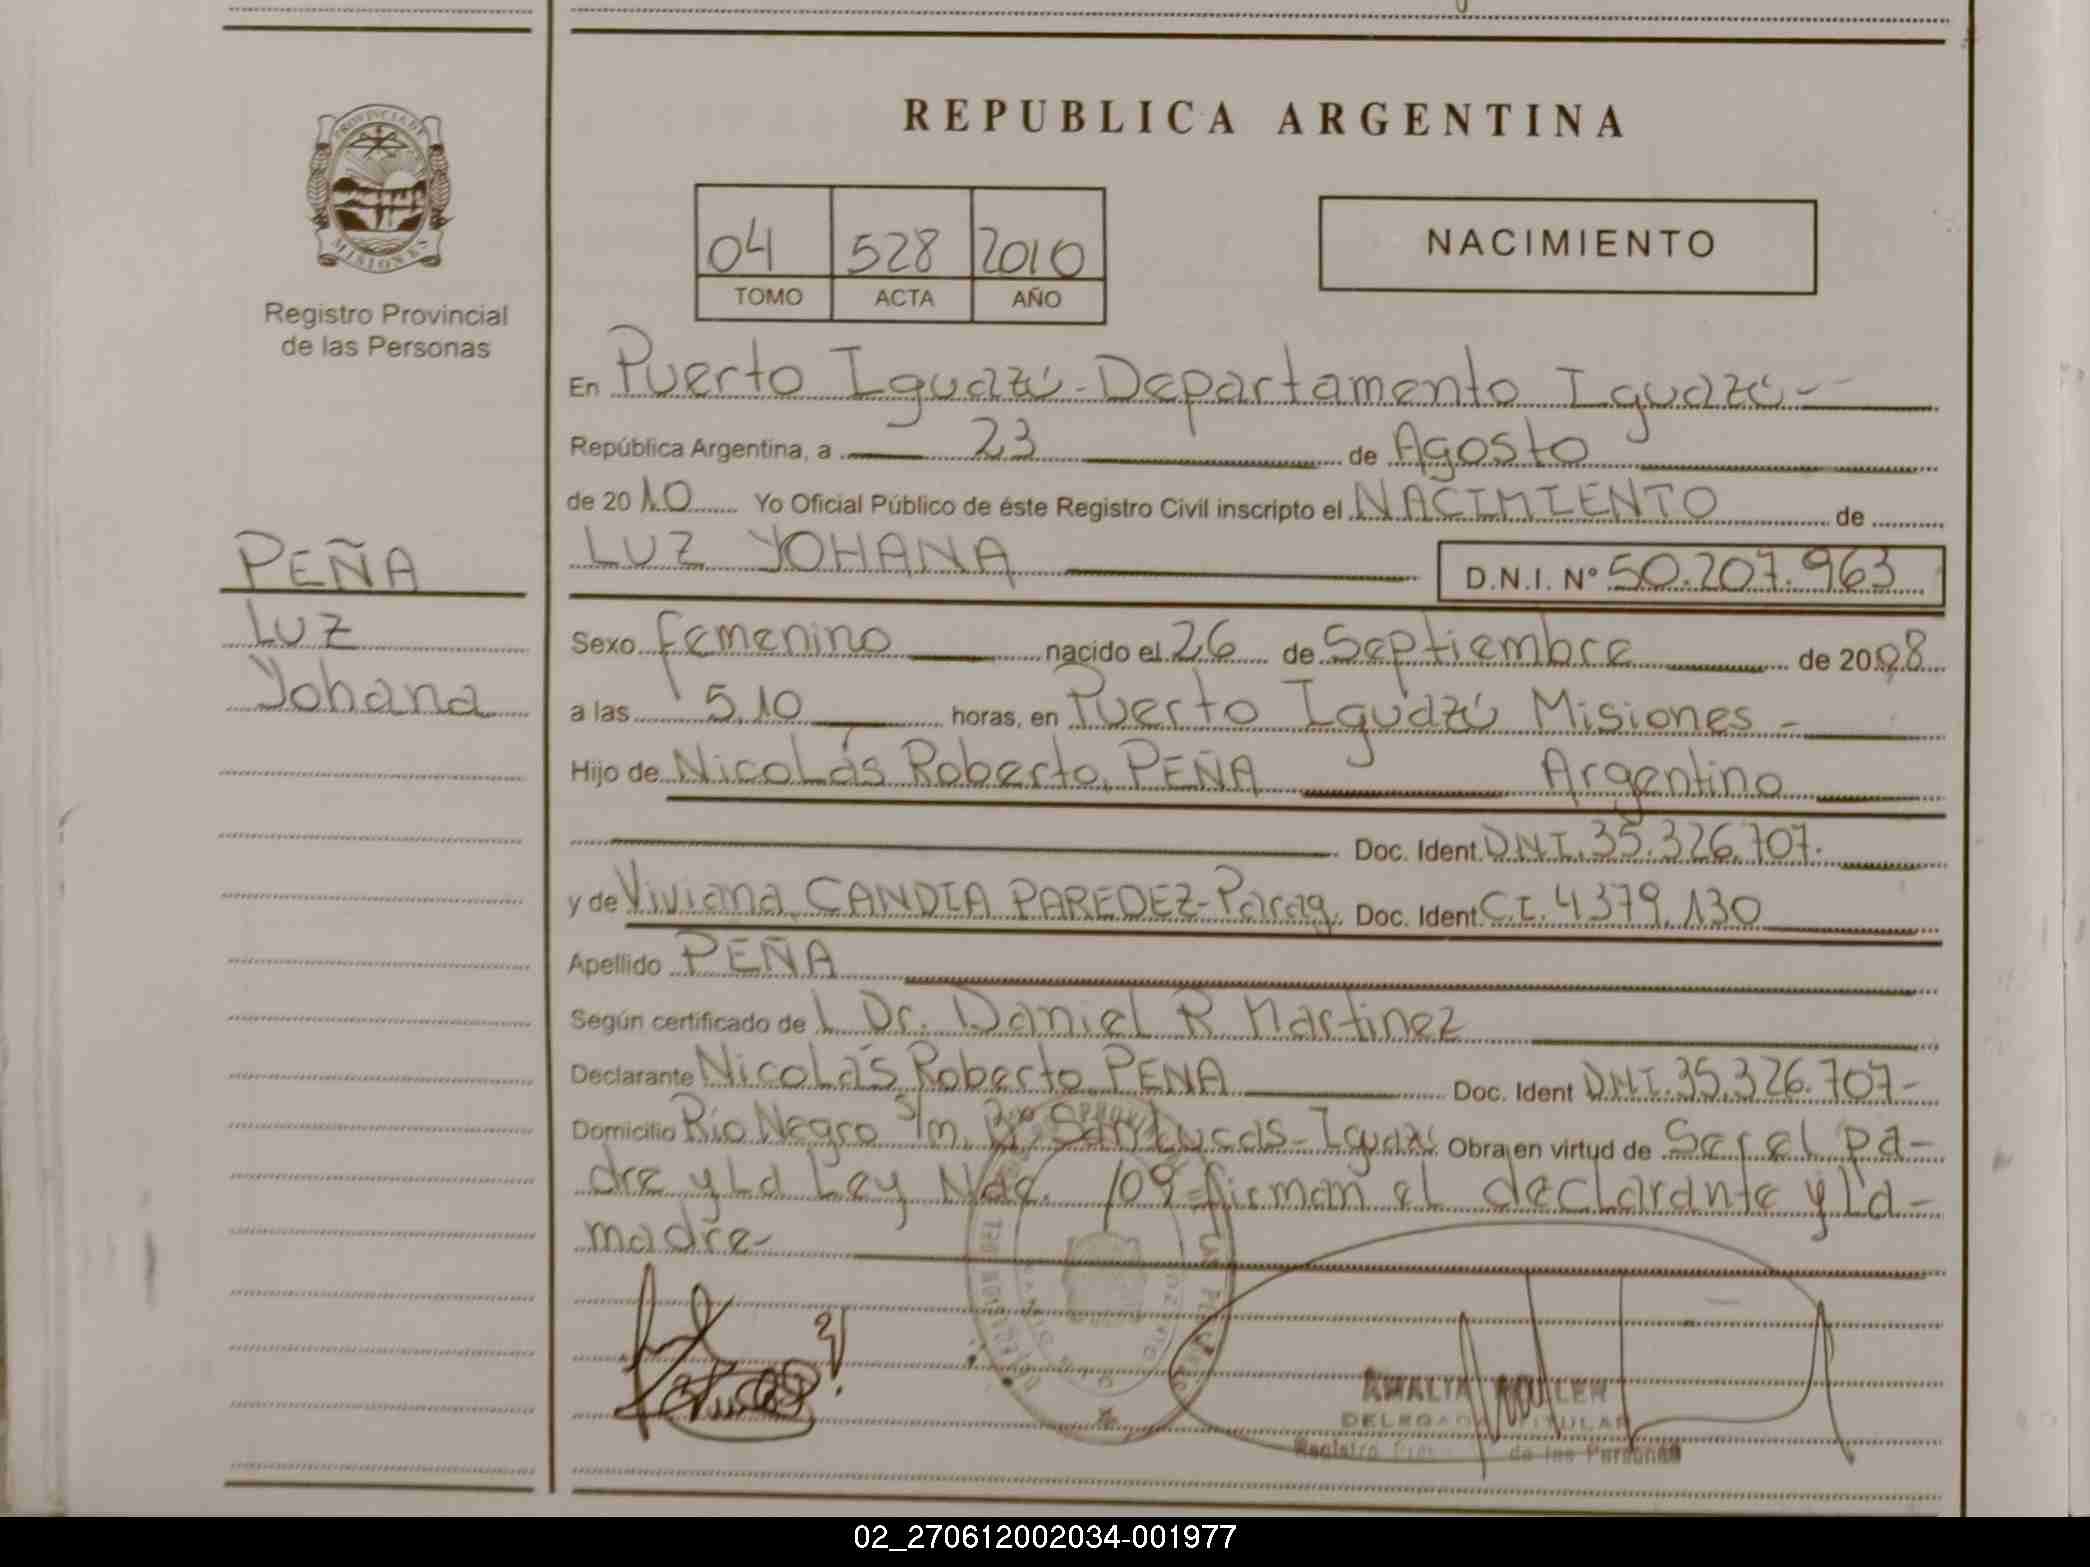 REPUBLICA ARGENTINA
PROVINCIA DE
MISIONES
Registro Provincial
de las Personas
04 528 2010
TOMO ACTA AÑO
NACIMIENTO
En Puerto Iguazú - Departamento Iguazú -
República Argentina, a 23 de Agosto
de 2010 Yo Oficial Público de éste Registro Civil inscripto el NACIMIENTO de
LUZ YOHANA D.N.I. Nº 50.207.963
PEÑA
LUZ
Yohana
Sexo femenino nacido el 26 de Septiembre de 2008
a las 5.10 horas, en Puerto Iguazú Misiones -
Hijo de Nicolás Roberto PEÑA Argentino
Doc. Ident. DNI. 35.326.707.
y de Viviana CANDIA PAREDEZ - Parag. Doc. Ident. C.I. 4379.130
Apellido PEÑA
Según certificado de L Dr. Daniel R Martinez
Declarante Nicolás Roberto PEÑA Doc. Ident DNI. 35.326.707-
Domicilio Río Negro s/n Bº San Lucas - Iguazú Obra en virtud de Ser el pa-
dre y La Ley Nac. 109 firman el declarante y la-
madre-
AMALIA MULLER
DELEGADA TITULAR
Registro de las Personas
02_270612002034-001977